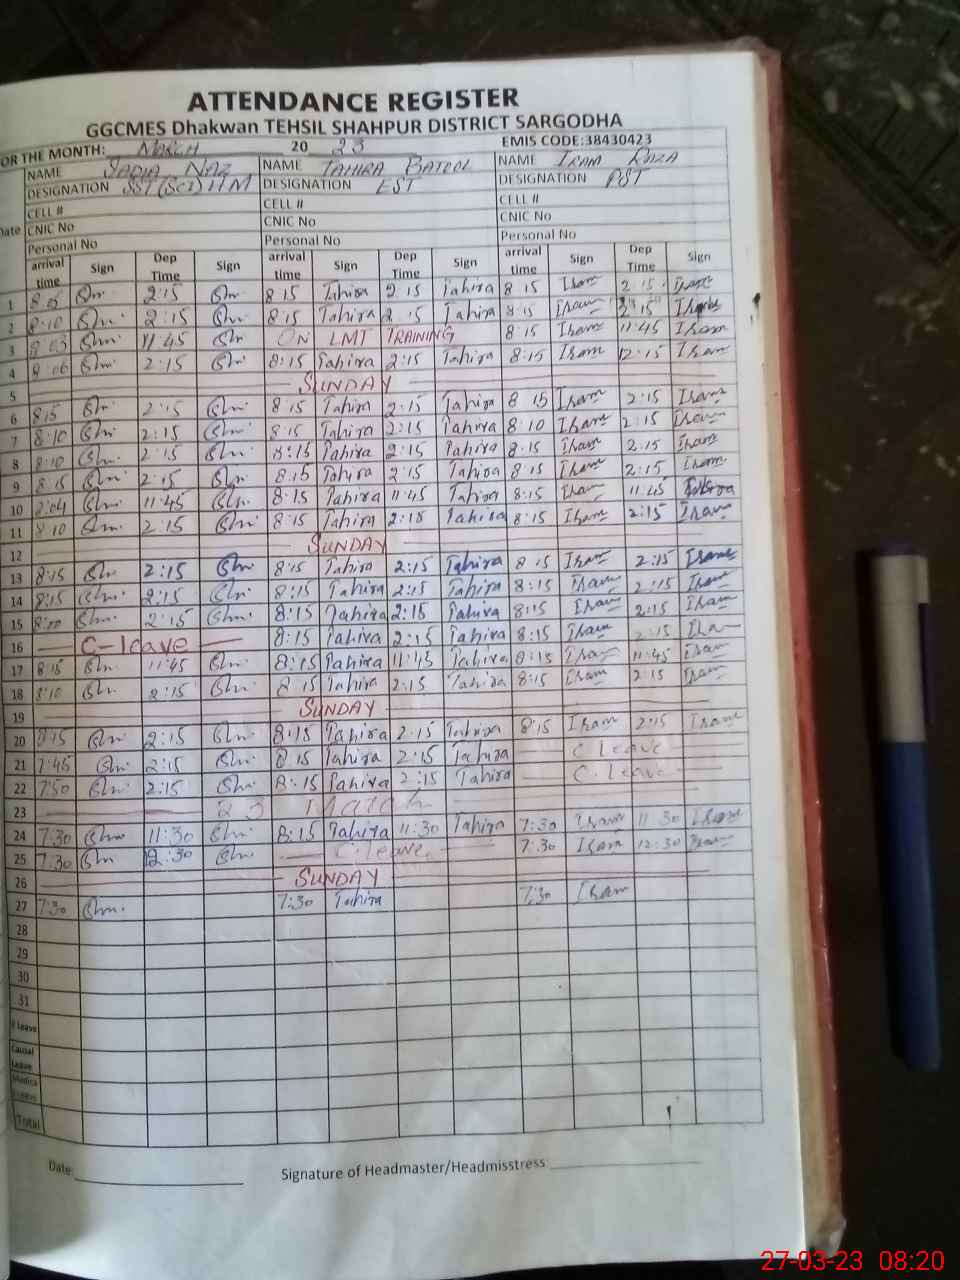 ATTENDANCE REGISTER
GGCMES Dhakwan TEHSIL SHAHPUR DISTRICT SARGODHA
OR THE MONTH: MARCH 20 23 EMIS CODE:38430423
NAME SADIA NAZ NAME TAHIRA BATOOL NAME IRAM RAZA
DESIGNATION SST(SCI) HM DESIGNATION EST DESIGNATION PST
CELL # CELL # CELL #
Date CNIC No CNIC No CNIC No
Personal No Personal No Personal No
arrival time Sign Dep Time Sign arrival time Sign Dep Time Sign arrival time Sign Dep Time Sign
1 2:15 8 15 Tahira 2 15 Tahira 8 15 Iram 2 15 Iram
2 8:10 2:15 8:15 Tahira 2 15 Tahira 8:15 Iram 2 15
3 11 45 ON LMT TRAINING 8:15 Iram 11 45 Iram
4 8 06 2:15 8:15 Tahira 2:15 Tahira 8:15 Iram 12:15 Iram
5 SUNDAY
6 8:15 2:15 8 15 Tahira 2:15 Tahira 8 15 Iram 2:15 Iram
7 8:10 2:15 8:15 Tahira 2:15 Tahira 8 10 Iram 2:15 Iram
8 8:10 2:15 8:15 Tahira 2:15 Tahira 8:15 Iram 2:15 Iram
9 8:15 2:15 8:15 Tahira 2:15 Tahira 8:15 Iram 2:15 Iram
10 11:45 8:15 Tahira 11:45 Tahira 8:15 Iram 11:45
11 8:10 2:15 8:15 Tahira 2:15 Tahira 8:15 Iram 2:15 Iram
12 SUNDAY
13 8:15 2:15 8:15 Tahira 2:15 Tahira 8 15 Iram 2:15 Iram
14 8:15 2:15 8:15 Tahira 2:15 Tahira 8:15 Iram 2:15 Iram
15 2:15 8:15 Tahira 2:15 Tahira 8:15 Iram 2:15 Iram
16 C-leave 8:15 Tahira 2:15 Tahira 8:15 Iram 2:15 Iram
17 8:15 11:45 8:15 Tahira 11:45 Tahira 8:15 Iram 11:45 Iram
18 8:10 2:15 8 15 Tahira 2:15 Tahira 8:15 Iram 2:15 Iram
19 SUNDAY
20 8:15 2:15 8:15 Tahira 2:15 Tahira 8:15 Iram 2:15 Iram
21 7:45 2:15 8 15 Tahira 2:15 Tahira C leave
22 7:50 2:15 8:15 Tahira 2:15 Tahira C. leave
23 23 March
24 7:30 11:30 8:15 Tahira 11:30 Tahira 7:30 Iram 11 30 Iram
25 7:30 12:30 C.leave. 7:30 Iram 12:30 Iram
26 SUNDAY
27 7:30 7:30 Tahira 7:30 Iram
28
29
30
31
Leave
Causal Leave
Medica Leave
Total
Date: Signature of Headmaster/Headmisstress:
27-03-23 08:20